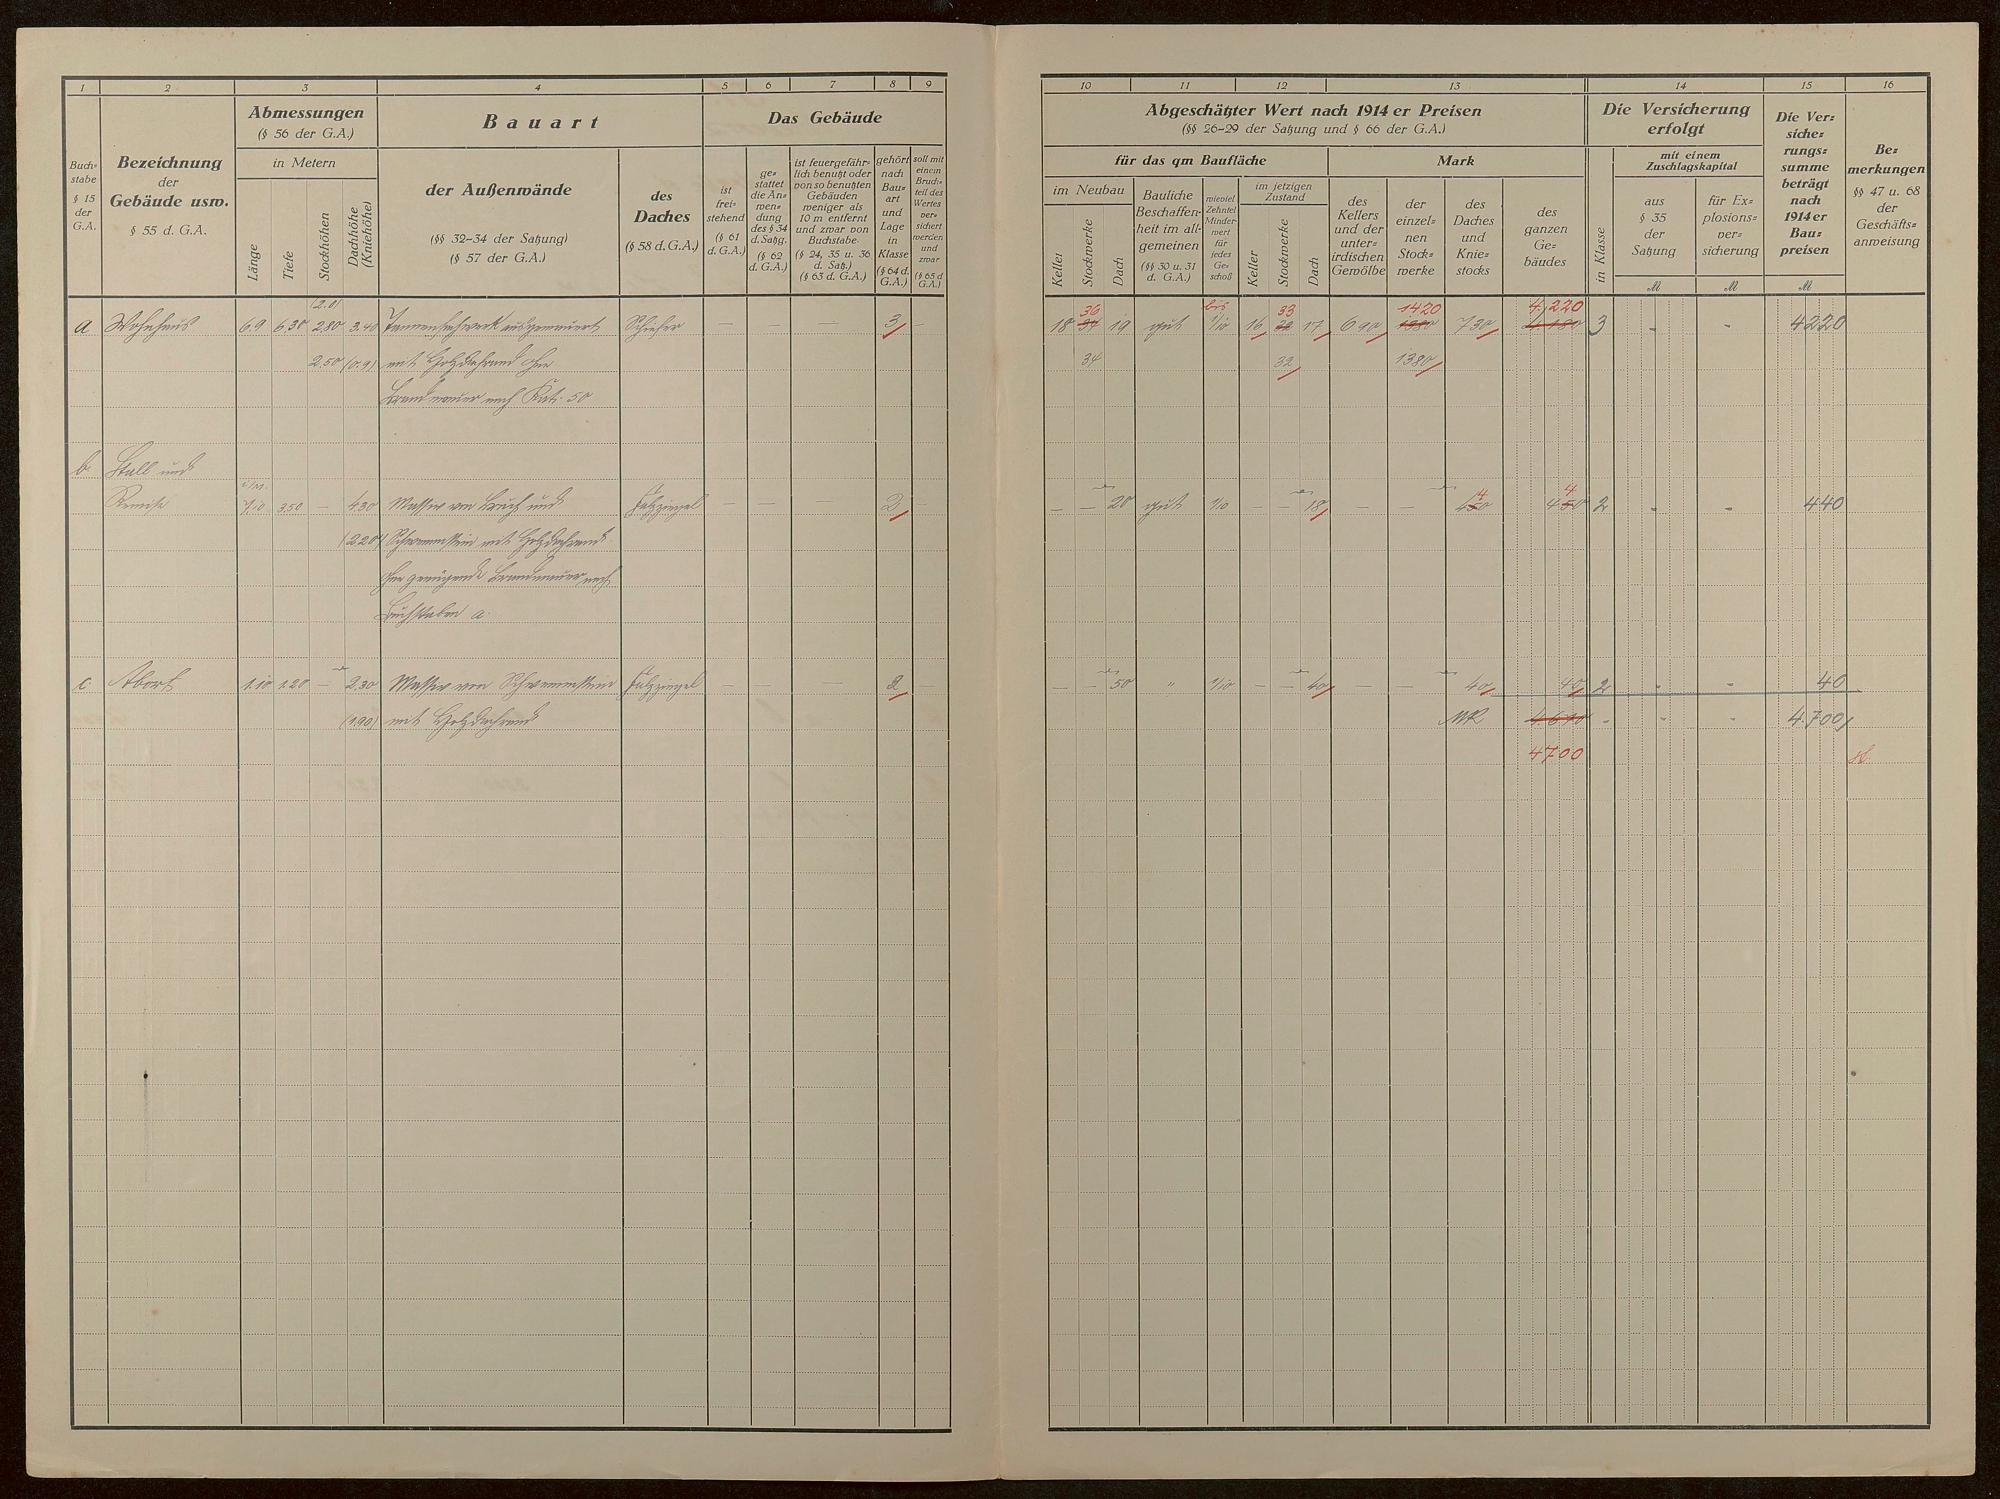 1 2 3 4 5 6 7 8 9
Buch=
stabe
§ 15
der
G.A.
Bezeichnung
der
Gebäude usw.
§ 55 d. G.A.
Abmessungen
(§ 56 der G.A.)
in Metern
Länge
Tiefe
Stockhöhen
Dachhöhe
(Kniehöhe)
Bauart
der Außenwände
(§§ 32-34 der Satzung)
(§ 57 der G.A.)
des
Daches
(§ 58 d. G.A.)
Das Gebäude
ist
frei=
stehend
(§ 61
d. G.A.)
ge=
stattet
die An=
wen=
dung
des § 34
d. Satzg.
(§ 62
d. G.A.)
ist feuergefähr=
lich benutzt oder
von so benutzten
Gebäuden
weniger als
10 m entfernt
und zwar von
Buchstabe
(§ 24, 35 u. 36
d. Satz.)
(§ 63 d. G.A.)
gehört
nach
Bau=
art
und
Lage
in
Klasse
(§ 64 d.
G.A.)
soll mit
einem
Bruch=
teil des
Wertes
ver=
sichert
werden
und
zwar
(§ 65 d
G.A.)
(2.0)
a Wohnhaus 6.9 6.30 2.80 3.40 Tannenfachwerk ausgemauert Schiefer — — — 3 —
2.50 (0.9) mit Holzdachrand ohne
Brandmauer nach Kat. 50
b Stall und
i/m.
Remise 7.10 3.50 — 4.30 Massiv von Bruch und Falzziegel — — — 2 —
(2.20) Schwemmstein mit Holzdachrand
ohne genügende Brandmauer nach
Buchstaben a.
c Abort 1.10 1.20 — 2.30 Massiv von Schwemmstein Falzziegel — — — 2 —
(1.90) mit Holzdachrand
10 11 12 13 14 15 16
Abgeschätzter Wert nach 1914 er Preisen
(§§ 26-29 der Satzung und § 66 der G.A.)
für das qm Baufläche
Mark
im Neubau
Keller
Stockwerke
Dach
Bauliche
Beschaffen=
heit im all=
gemeinen
(§§ 30 u. 31
d. G.A.)
wieviel
Zehntel
Minder=
wert
für
jedes
Ge=
schoß
im jetzigen
Zustand
Keller
Stockwerke
Dach
des
Kellers
und der
unter=
irdischen
Gewölbe
der
einzel=
nen
Stock=
werke
des
Daches
und
Knie=
stocks
des
ganzen
Ge=
bäudes
Die Versicherung
erfolgt
in Klasse
mit einem
Zuschlagskapital
aus
§ 35
der
Satzung
für Ex=
plosions=
ver=
sicherung
Die Ver=
siche=
rungs=
summe
beträgt
nach
1914 er
Bau=
preisen
Be=
merkungen
§§ 47 u. 68
der
Geschäfts=
anweisung
M M M
36 bis 33 1420 4.220
18 34 19 gut 1/10 16 32 17 690 1380 730 4.180 3 - - 4220
34 32 1380
4 4
— — 20 gut 1/10 — — 18 — — 450 450 2 - - 440
— — 50 " 1/10 — — 40 — — 40 40 2 - - 40
MK 4.670 - - - 4.700
4700